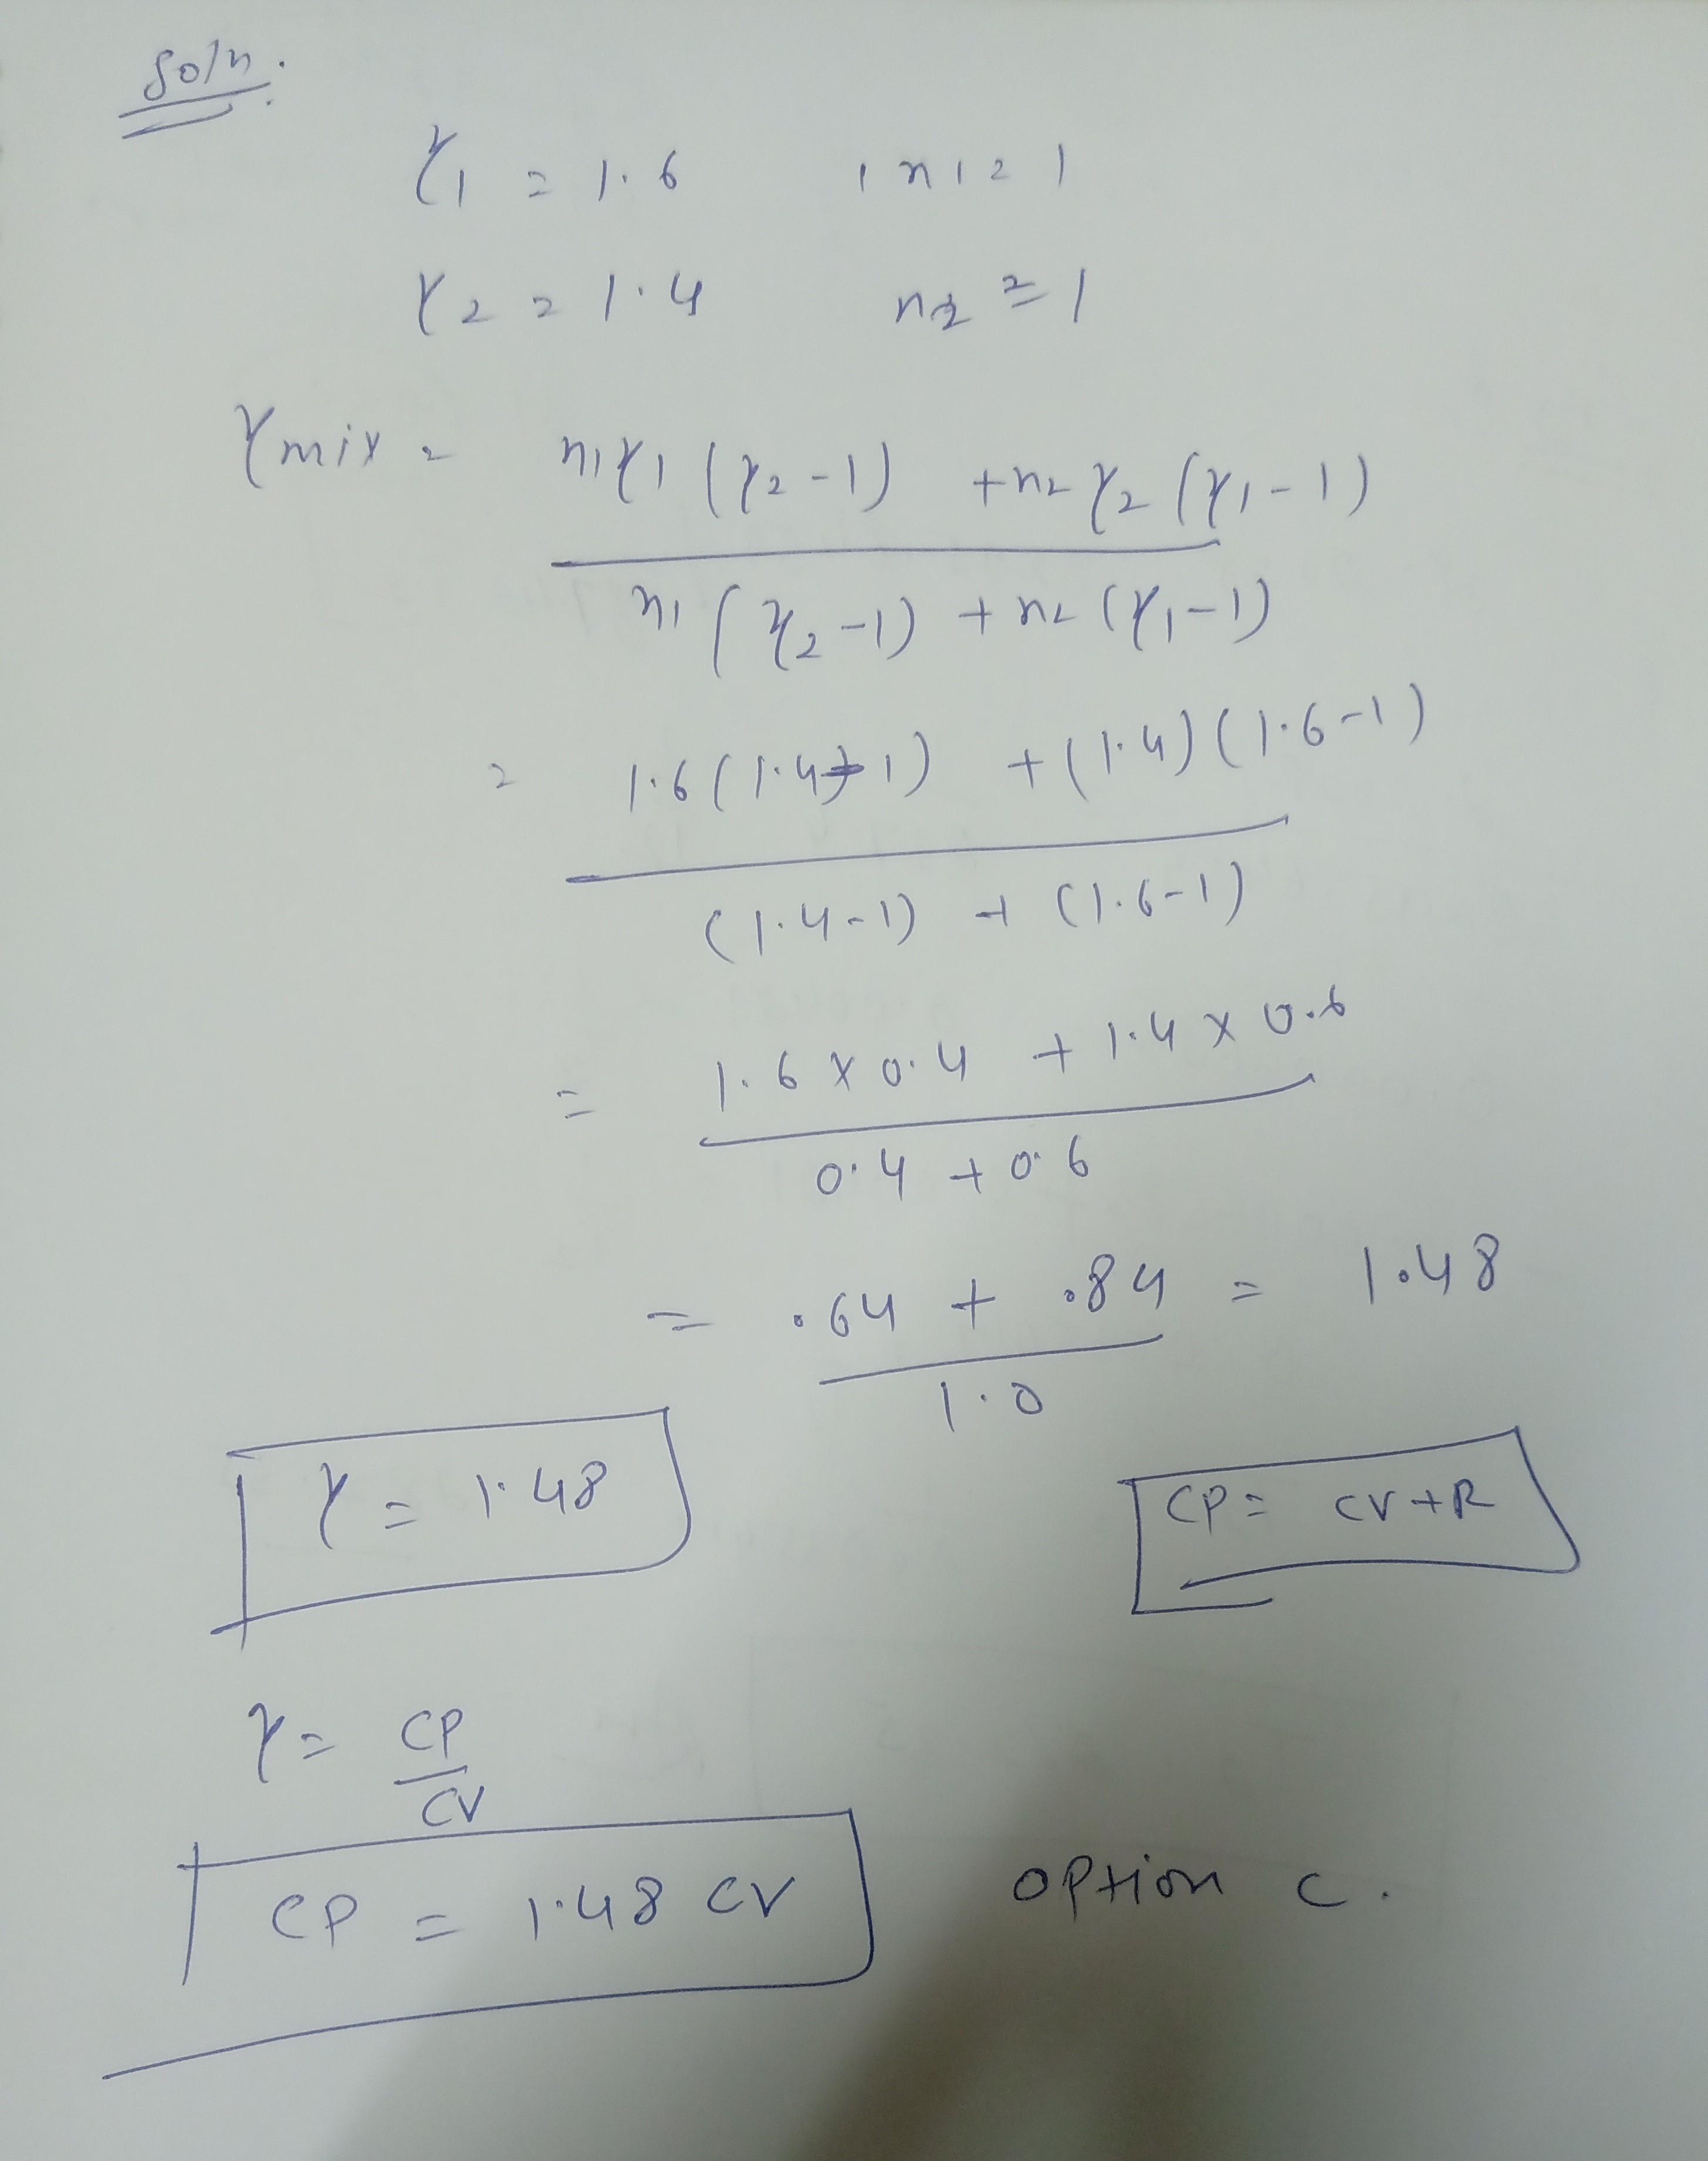 Soln.
γ1 = 1.6 , n1 = 1
γ2 = 1.4 n2 = 1
γmix = n1γ1 (γ2-1) + n2 γ2 (γ1-1)
n1 (γ2-1) + n2 (γ1-1)
= 1.6 (1.4-1) + (1.4) (1.6-1)
(1.4-1) + (1.6-1)
= 1.6 x 0.4 + 1.4 x 0.6
0.4 + 0.6
= .64 + .84 = 1.48
1.0
γ = 1.48
CP = CV + R
γ = CP
CV
CP = 1.48 CV option c.